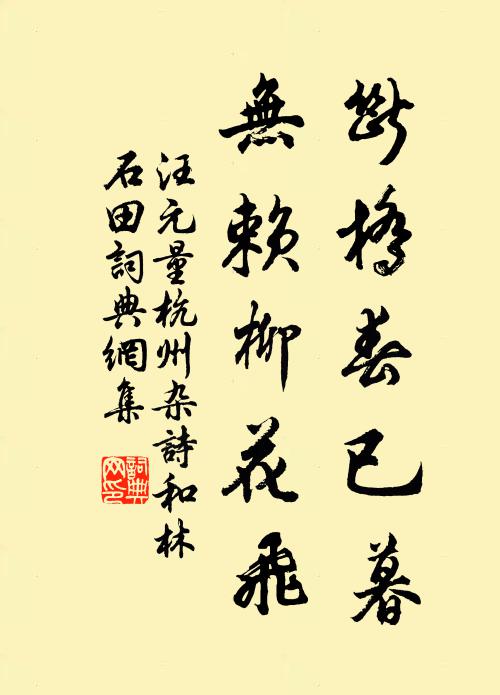 斷橋春已暮
無賴柳花飛
汪元量杭州杂詩和林
石田詞典網集
詞典网印